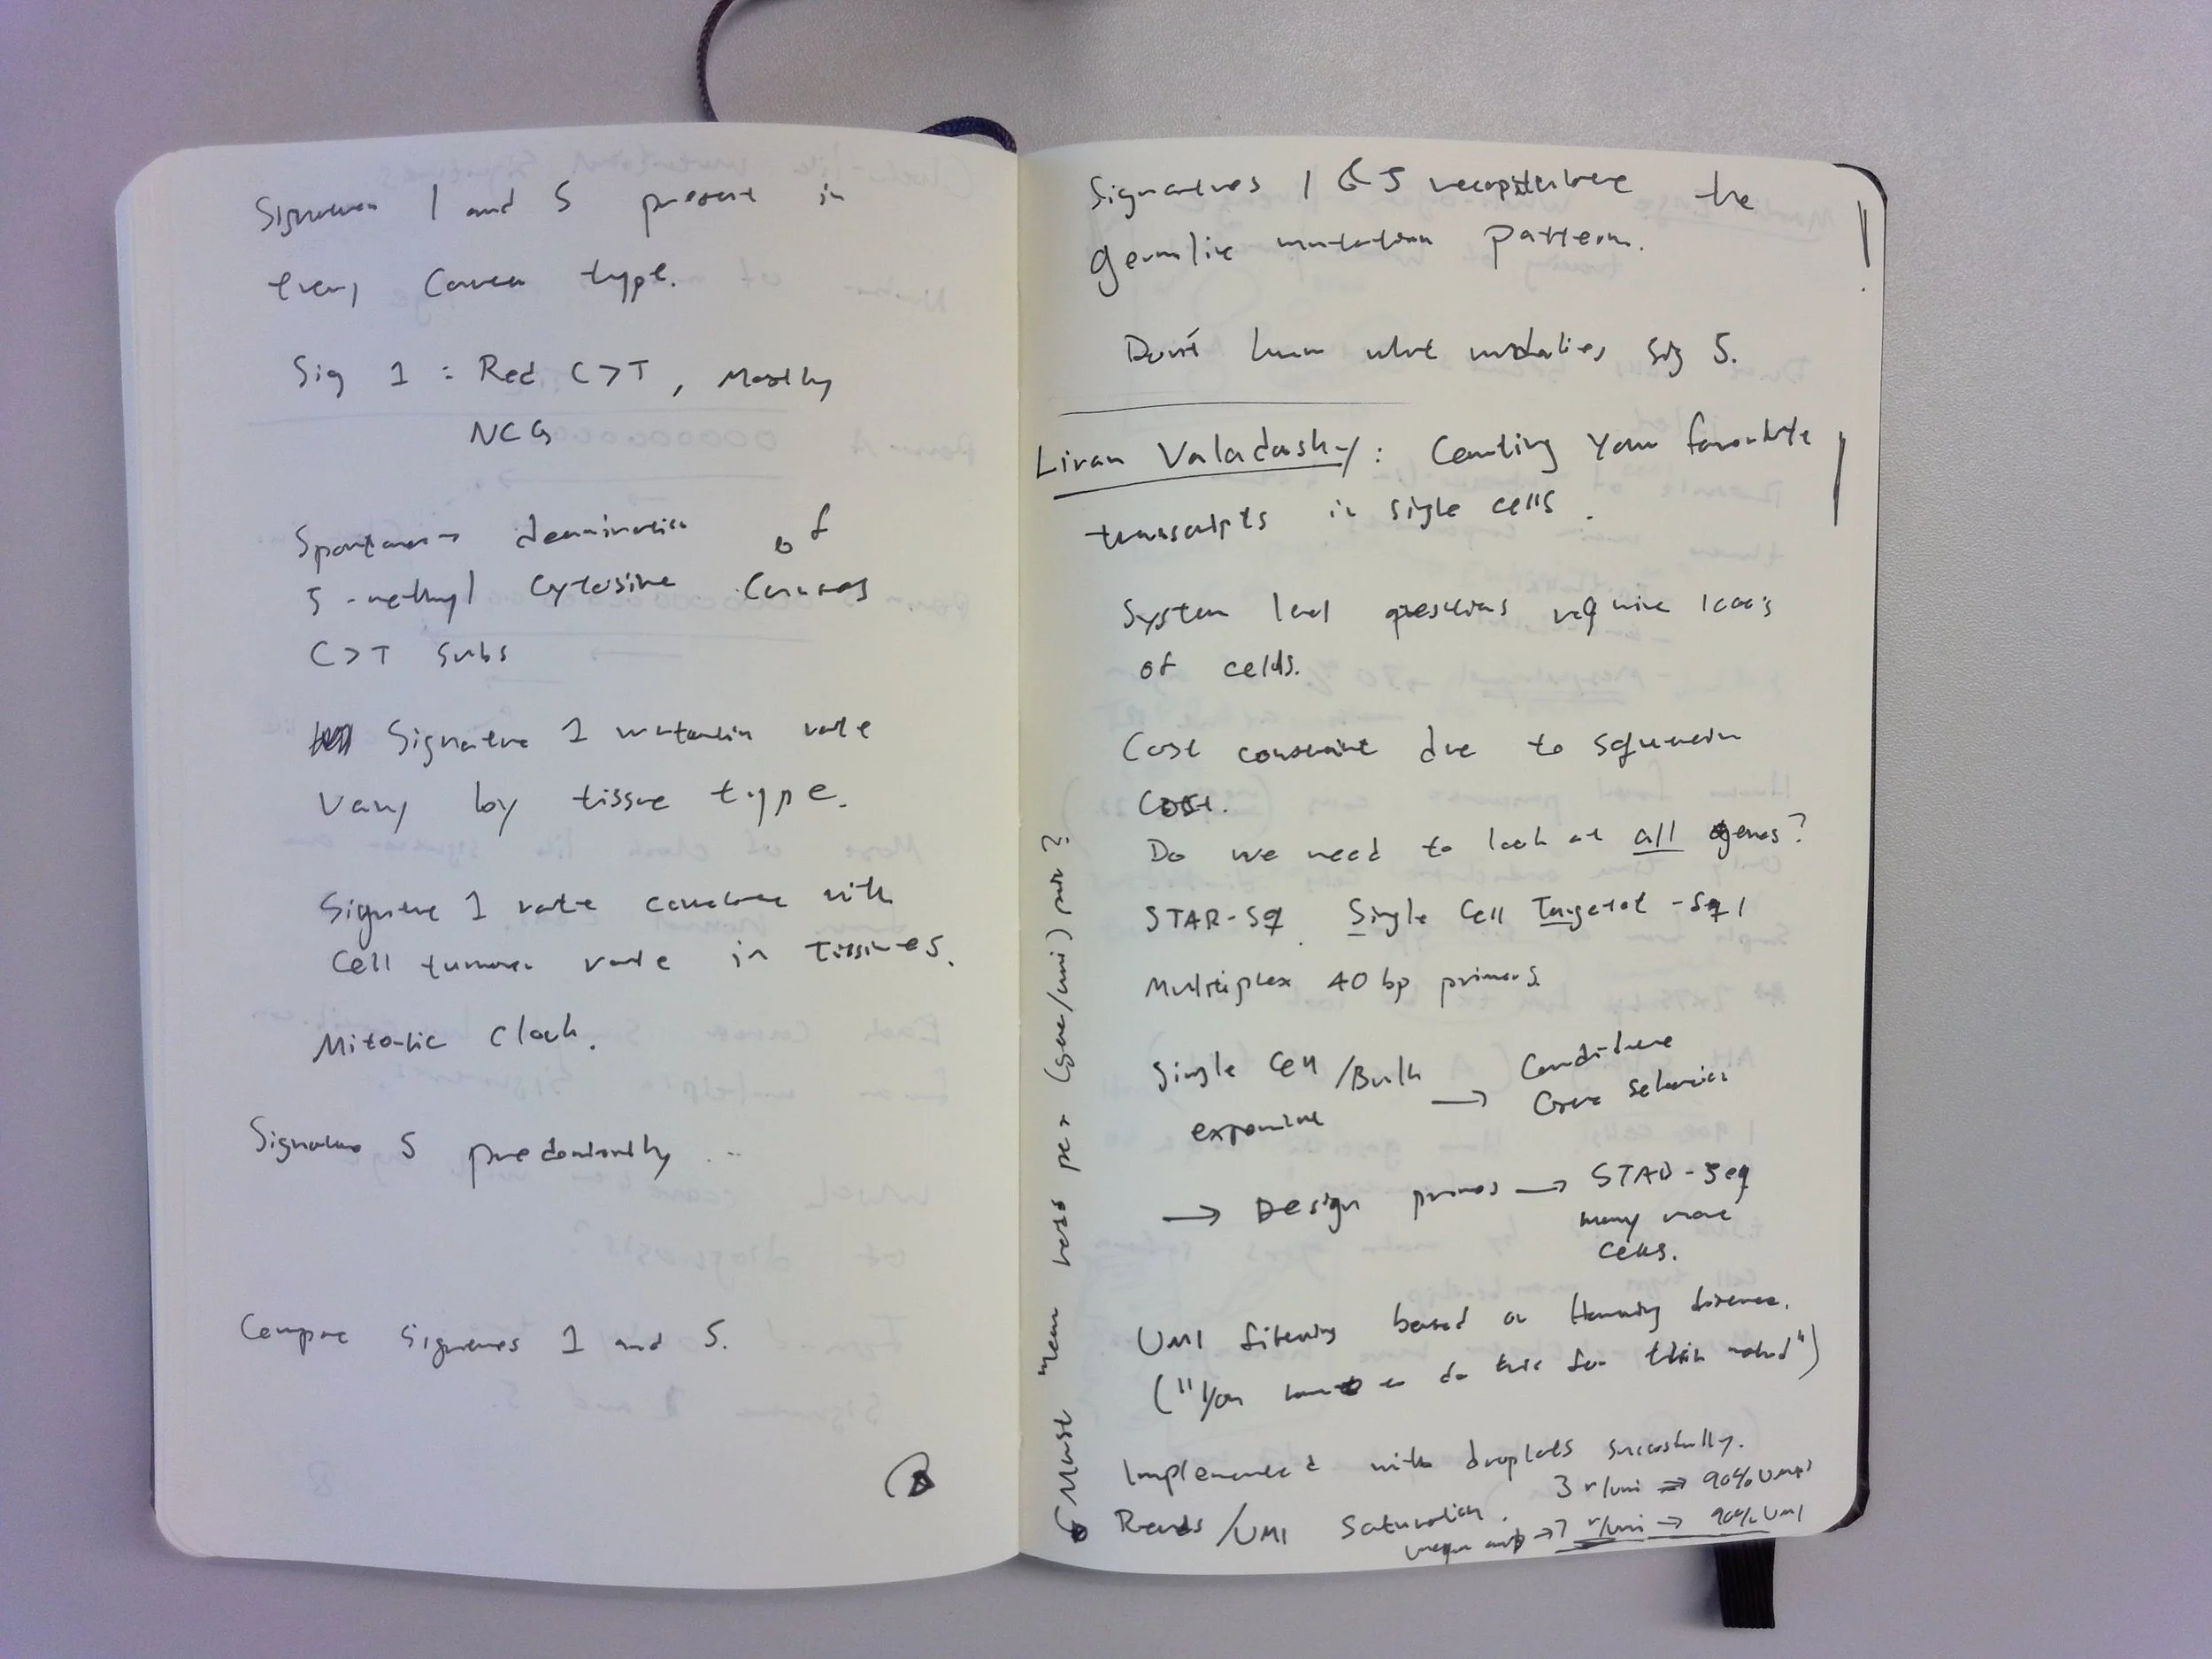 Signatures 1 and 5 present in
every cancer type.
Sig 1 : Red C>T , Mostly
NCG
Spontaneous deamination of
5-methyl cytosine causes
C>T subs
Signature 1 mutation rate
vary by tissue type.
Signature 1 rate correlate with
cell turnover rate in tissues.
Mitotic clock.
Signature 5 predominantly ...
Compare signatures 1 and 5.
Signatures 1 & 5 recapitulate the
germline mutation pattern.
Don't know what underlies sig 5.
Liran Valadarsky : Counting your favourite
transcripts in single cells.
System level questions require 1000's
of cells.
Cost constraint due to sequencin
cost.
Do we need to look at all genes?
STAR-Sq. Single Cell Targetet -Sq
Multiplex 40 bp primers
Single Cell /Bulk → Candidate
expensive Gene selection
→ Design primers → STAR-Seq
many more
cells.
UMI filtering based on Hamming distance.
("You have to do this for this method")
Implemented with droplets successfully.
Reads /UMI saturation. 3 r/umi ⇒ 90% UMI
→ 7 r/umi → 90% UMI
Must mean reads per (gene/umi) pair ?